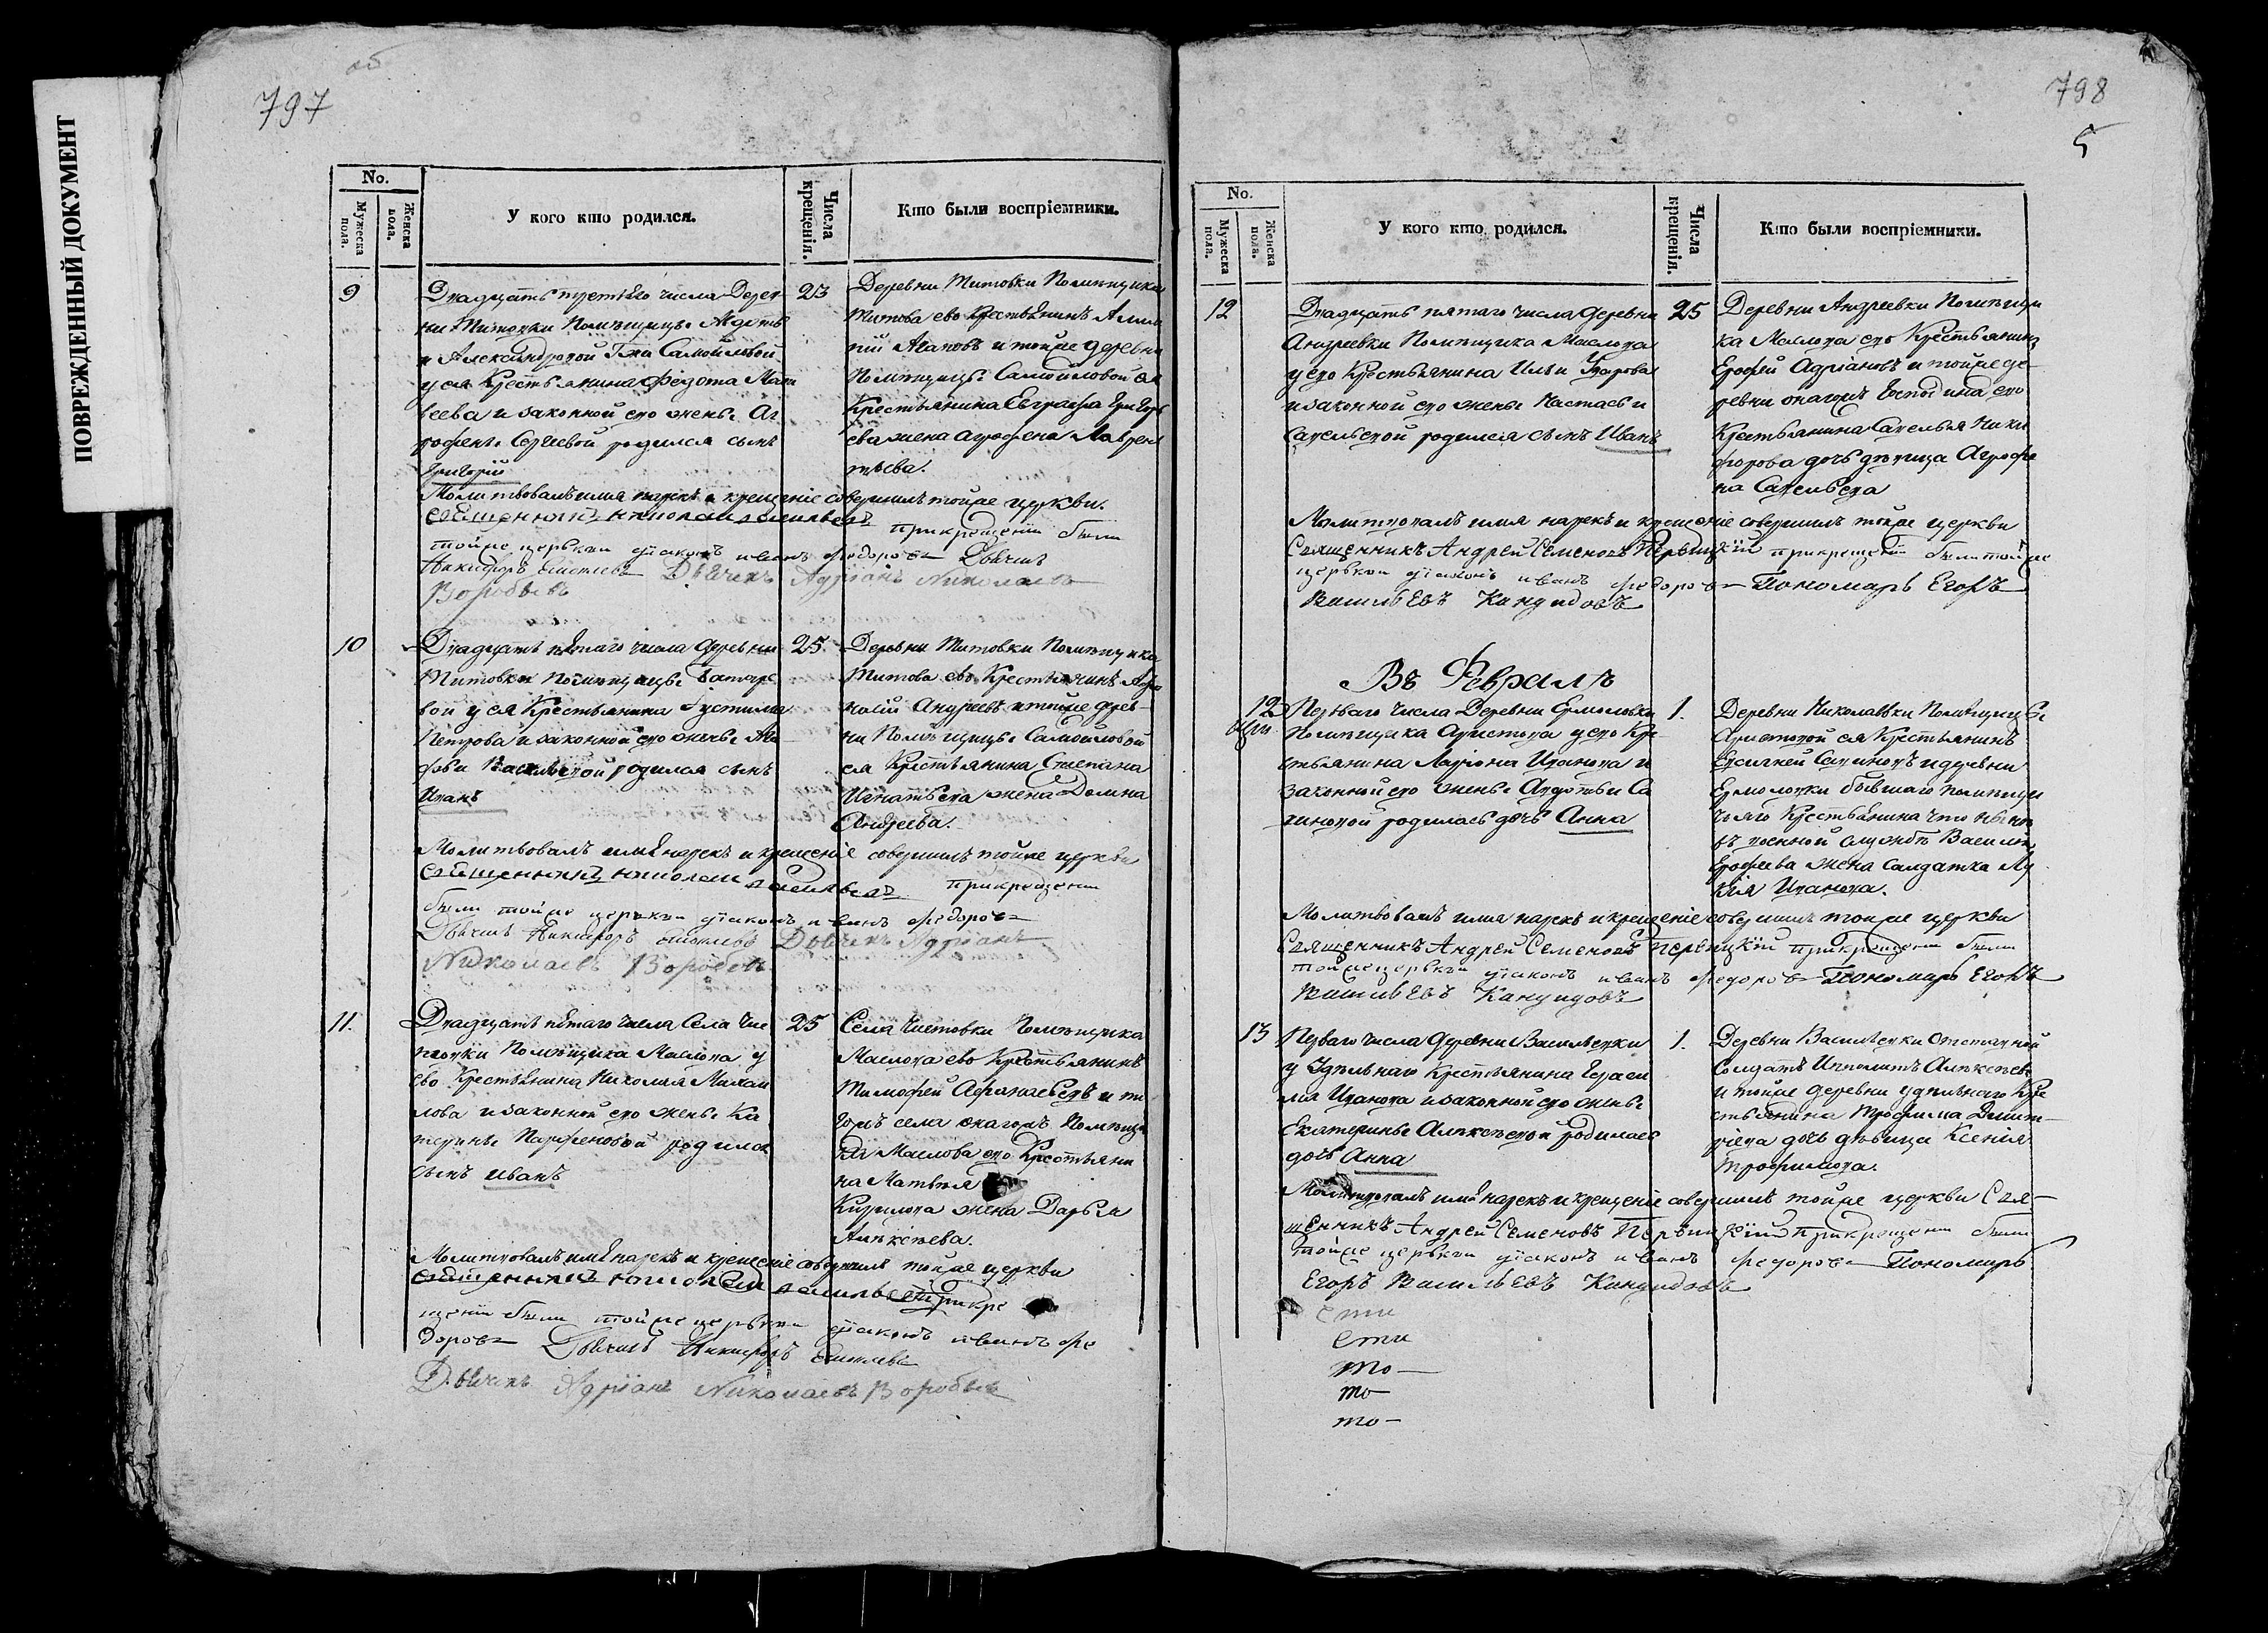 ПОВРЕЖДЕННЫЙ ДОКУМЕНТ
об
797
No.
Мужеска пола.
Женска пола.
У кого кто родился.
Числа крещенія.
Кто были воспріемники.
9
Двадцать третьяго числа Дерев-
ни Титовки Помѣщицы Авдоть
и Александровой Г-жи Самойловой
у ея Крестьянина Федота Мат
веева и законной его жены Аг
рофены Сергіевой родился сынъ
Григорій
23
Деревни Титовки Помѣщика
Титова ево Крестьянинъ Алим
пій Агаповъ и тойже деревни
Помѣщицы Самойловой ея
Крестьянина Евграфа Григорь
ева жена Агрофена Лаврен
тьева.
Молитвовалъ имя нарекъ и крещеніе совершилъ тойже церкви
священникъ Николай Васильевъ при крещеніи были
тойже церькви діаконъ иванъ Федоровъ Дьячикъ
Никифоръ Дьячекъ Адріанъ Николаевъ
Воробьевъ
10
Двадцать пятаго числа деревни
Титовки Помѣщицы
вой у ея Крестьянина Густина
Петрова и законной его жены Ма
рфы Васильевой родился сынъ
Иванъ
25
Деревни Титовки Помѣщика
Титова ево Крестьянинъ Афо
насій Андреевъ и тойже дерев-
ни Помѣщицы Самойловой
ея Крестьянина Степана
Игнатьева жена Домна
Андреева.
Молитвовалъ имя нарекъ и крещеніе совершилъ тойже церкви
священникъ Николай Васильевъ при крещеніи
были тойже церькви діаконъ иванъ Федоровъ
Дьячикъ Никифоръ Дьячекъ Адріанъ
Николаевъ Воробьевъ
11.
Двадцать пятаго числа Села Чис
товки Помѣщика Маслова у
ево Крестьянина Николая Михаи
лова и законной его жены Ка
терины Парфеновой родился
сынъ иванъ
25
Села Чистовки Помѣщика
Маслова ево Крестьянинъ
Тимофей Афанасьевъ и то
гожъ села онагожъ Помѣщи
ка Маслова его Крестьяни
на Матвея
Кирилова жена Дарья
Алексѣева.
Молитвовалъ имя нарекъ и крещеніе совершилъ тойже церкви
священникъ Николай Васильевъ При кре
щеніи были тойже церькви діаконъ иванъ Фе
доровъ Дьячикъ Никифоръ
Дьячекъ Адріанъ Николаевъ Воробьевъ
798
5
No.
Мужеска пола.
Женска пола.
У кого кто родился.
Числа крещенія.
Кто были воспріемники.
12
Двадцать пятаго числа деревни
Андреевки Помѣщика Маслова
у его Крестьянина Ильи
и законной его жены Настасьи
Савельевой родился сынъ Иванъ
25
Деревни Андреевки Помѣщи
ка Маслова его Крестьянинъ
Ерофей Адріановъ и тойже де-
ревни онагожъ Господина его
Крестьянина Савелья Ники
форова дочь дѣвица Агрофе
на Савельева
Молитвовалъ имя нарекъ и крещеніе совершилъ тойже церкви
Священникъ Андрей Семеновъ при крещеніи были тойже
церькви діаконъ иванъ Федоровъ Пономарь Егоръ
Васильевъ Кандидовъ
Въ Февралѣ
12
Перваго числа Деревни Ермоловки
Помѣщика Аристова у его Кре
стьянина Ларіона Иванова и
законной его жены Авдотьи Са
виновой родилась дочь Анна
1.
Деревни Николаевки Помѣщицы
Аристовой ея Крестьянинъ
Евсигней Савиновъ и деревни
Ермоловки бывшаго помѣщи
чьяго Крестьянина что нынѣ
въ военной службѣ Василія
Ерофеева жена солдатка Лу
кія Иванова.
Молитвовалъ имя нарекъ и крещеніе совершилъ тойже церкви
Священникъ Андрей Семеновъ при крещеніи были
тойже церькви діаконъ иванъ Федоровъ Пономарь Егоръ
Васильевъ Кандидовъ
13
Перваго числа деревни Васильевки
у Удѣльнаго Крестьянина Гераси
ма Иванова и законной его жены
Екатерины Алексѣевой родилась
дочь Анна
1.
Деревни Васильевки Отставной
Солдатъ Ипполитъ Алексѣевъ
и тойже деревни удѣльнаго Кре
стьянина Трофима Димит-
ріева дочь дѣвица Ксенія
Трофимова.
Молитвовалъ имя нарекъ и крещеніе совершилъ тойже церкви Свя-
щенникъ Андрей Семеновъ При крещеніи были
тойже церькви діаконъ иванъ Федоровъ Пономарь
Егоръ Васильевъ Кандидовъ
сти
сти
то-
то
то-